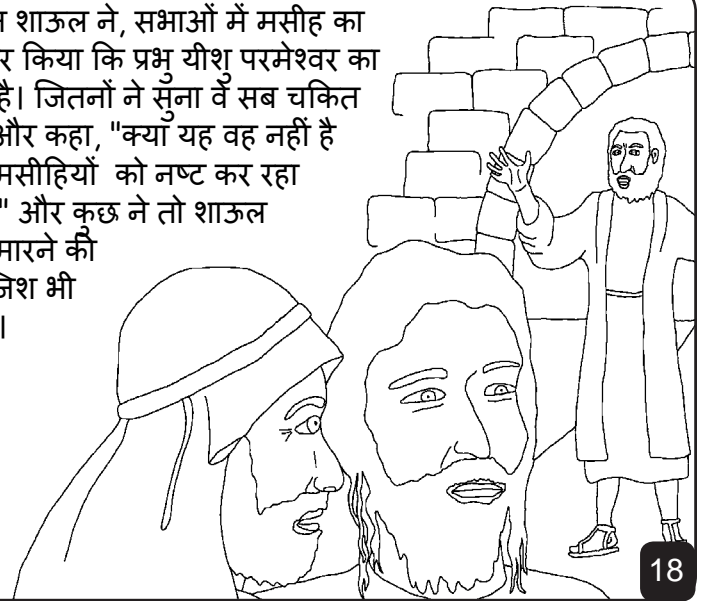 शाऊल ने, सभाओं में मसीह का
किया कि प्रभु यीशु परमेश्वर का
है। जितनों ने सुना वे सब चकित
और कहा, "क्या यह वह नहीं है
मसीहियों को नष्ट कर रहा
" और कुछ ने तो शाऊल
मारने की
भी
।
18